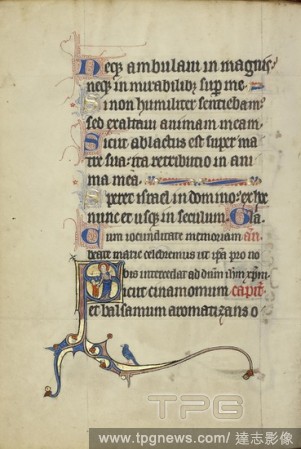 Neq; ambulavi in magnis;
neq; in mirabilib; sup me.
Si non humiliter sentiebam;
sed exaltavi animam meam.
Sicut ablactus est super ma
tre sua: ita retributio in ani
ma mea.
Speret israel in domino; ex hoc
nunc et usq; in seculum. Gla
Cum iocunditate memoriam
beate marie celebremus ut ipa pro no
bis intercedat ad dnm ihm xpm.
Sicut cinamomum capit.
et balsamum aromatizans o
TPG
www.tpgnews.com/達志影像